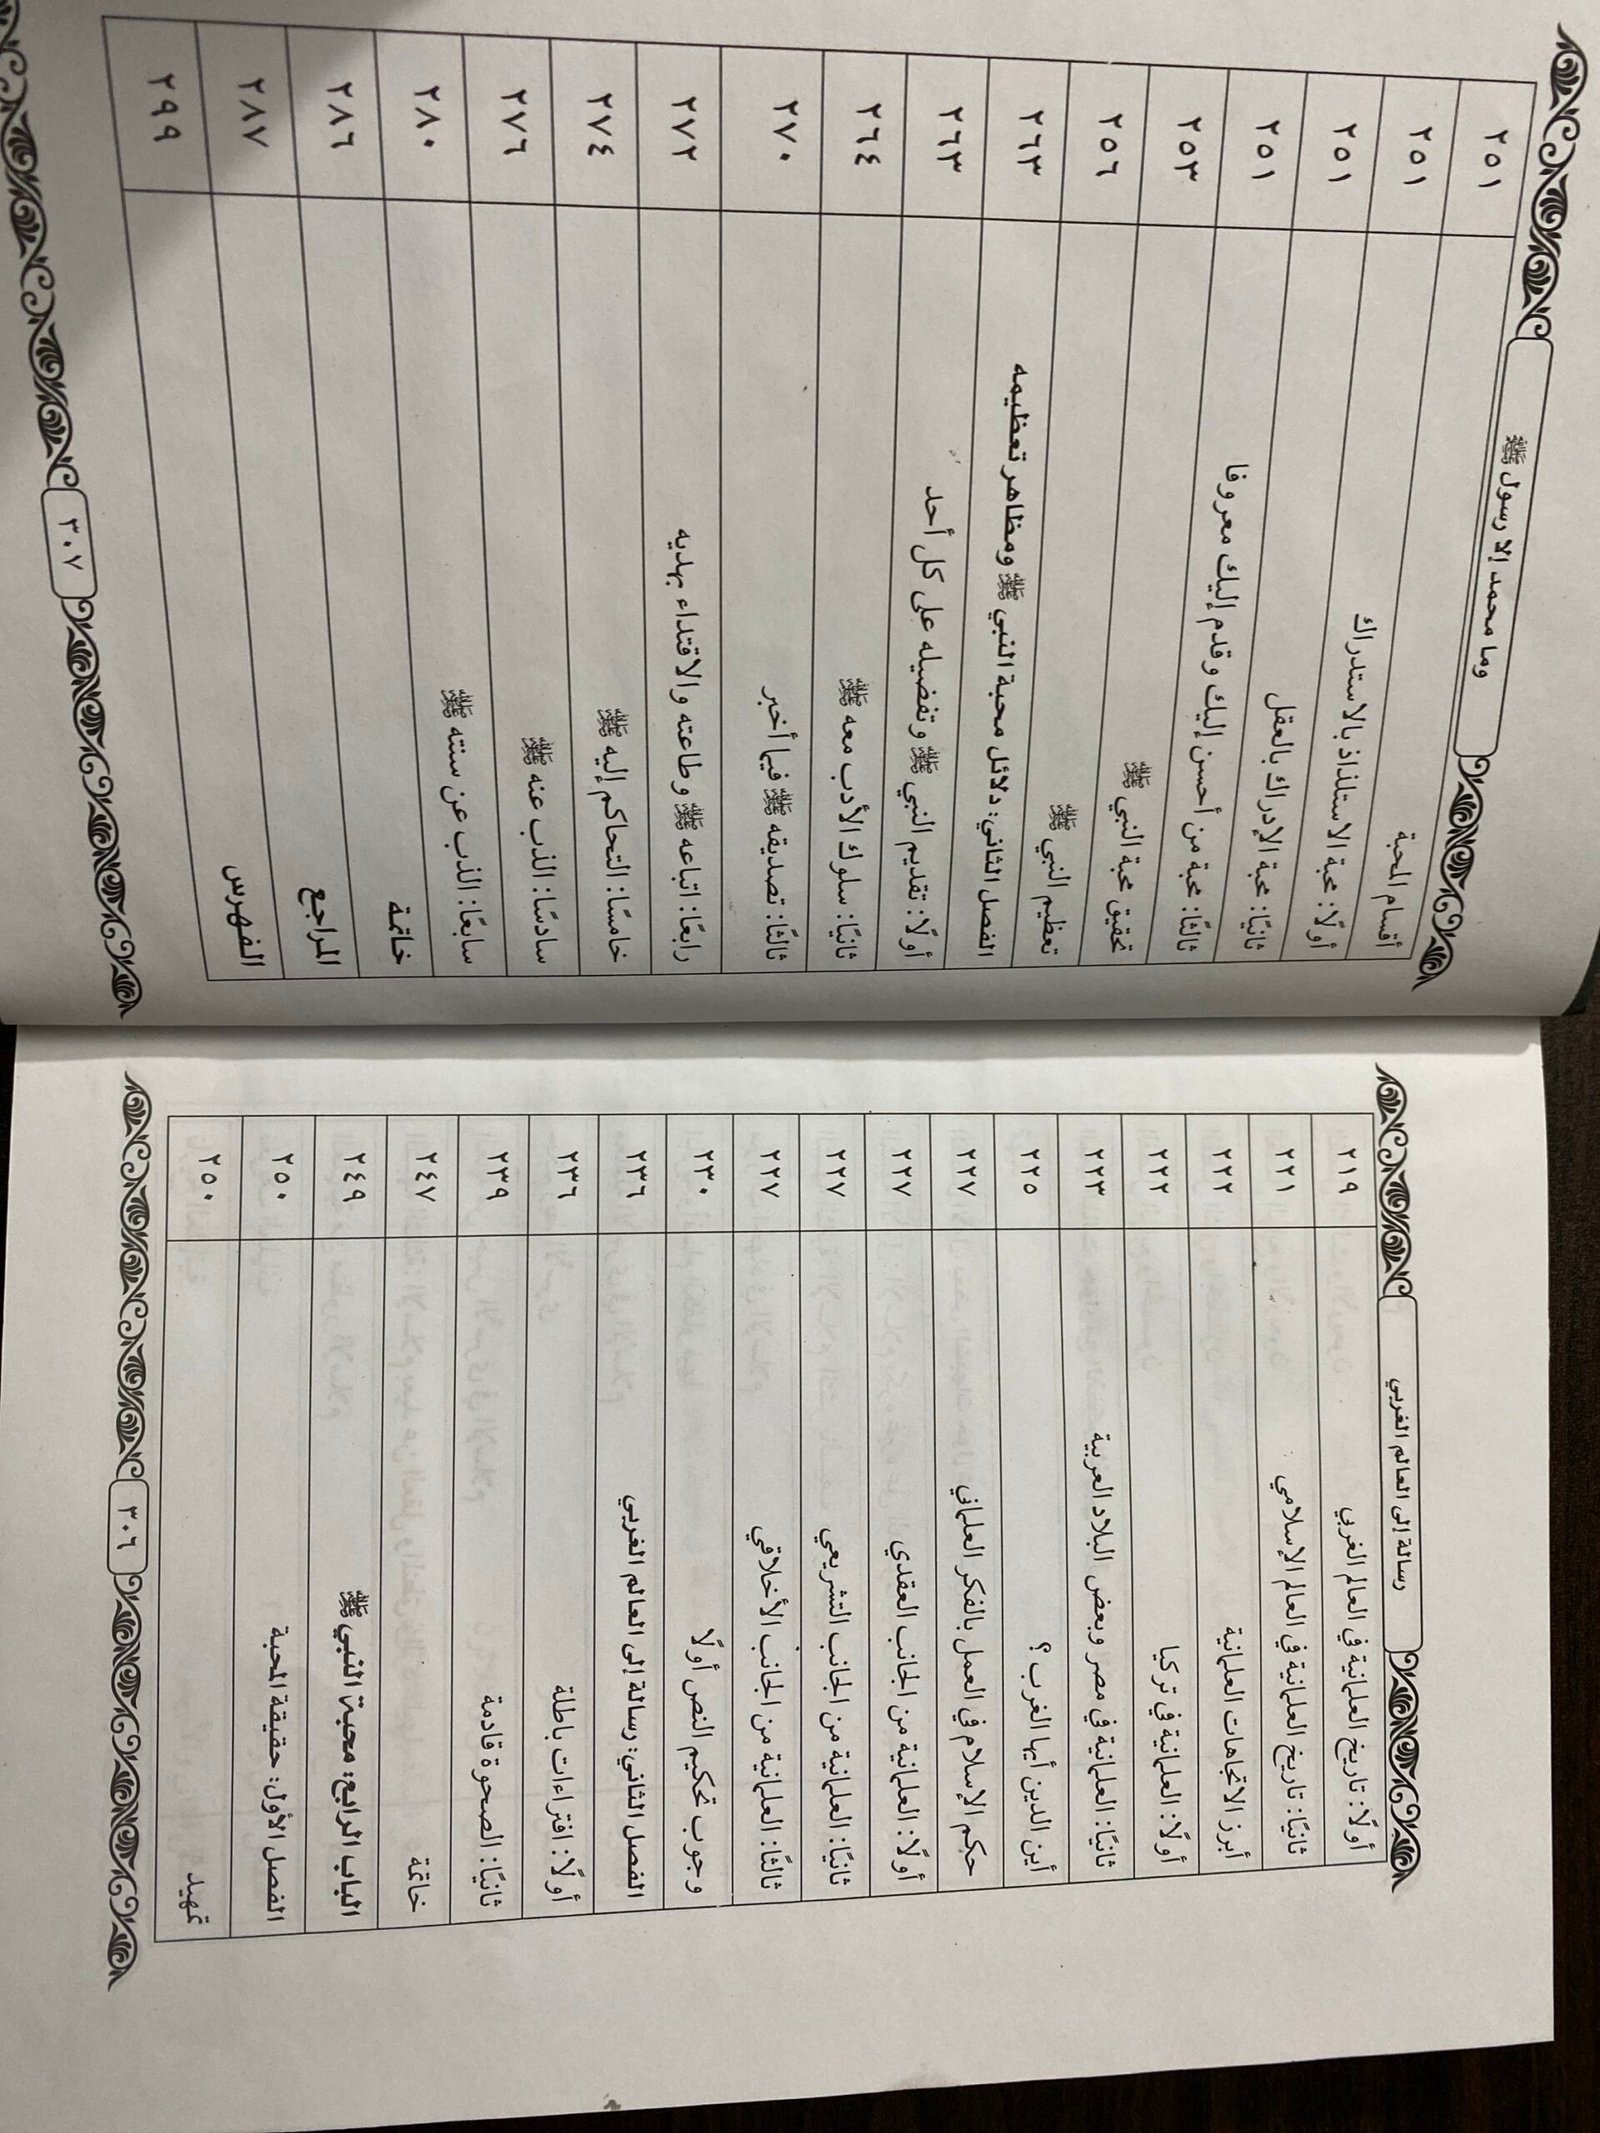 رسالة إلى العالم الغربي
أولًا: تاريخ العلمانية في العالم الغربي ٢١٩
ثانيًا: تاريخ العلمانية في العالم الإسلامي ٢٢١
أبرز الاتجاهات العلمانية ٢٢٢
أولًا: العلمانية في تركيا ٢٢٢
ثانيًا: العلمانية في مصر وبعض البلاد العربية ٢٢٣
أين الدين أيها الغرب؟ ٢٢٥
حكم الإسلام في العمل بالفكر العلماني ٢٢٧
أولًا: العلمانية من الجانب العقدي ٢٢٧
ثانيًا: العلمانية من الجانب التشريعي ٢٢٧
ثالثًا: العلمانية من الجانب الأخلاقي ٢٢٧
وجوب تحكيم النص أولًا ٢٣٠
الفصل الثاني: رسالة إلى العالم الغربي ٢٣٦
أولًا: افتراءات باطلة ٢٣٦
ثانيًا: الصحوة قادمة ٢٣٩
خاتمة ٢٤٧
الباب الرابع: محبة النبي ﷺ ٢٤٩
الفصل الأول: حقيقة المحبة ٢٥٠
تمهيد ٢٥٠
٣٠٦
وما محمد إلا رسول ﷺ
٢٥١
أقسام المحبة ٢٥١
أولًا: محبة الاستلذاذ بالاستدراك ٢٥١
ثانيًا: محبة الإدراك بالعقل ٢٥١
ثالثًا: محبة من أحسن إليك وقدم إليك معروفا ٢٥٣
تحقيق محبة النبي ﷺ ٢٥٦
تعظيم النبي ﷺ
الفصل الثاني: دلائل محبة النبي ﷺ ومظاهر تعظيمه ٢٦٣
أولًا: تقديم النبي ﷺ وتفضيله على كل أحد ٢٦٣
ثانيًا: سلوك الأدب معه ﷺ ٢٦٤
ثالثًا: تصديقه ﷺ فيما أخبر ٢٧٠
رابعًا: اتباعه ﷺ وطاعته والاقتداء بهديه ٢٧٢
خامسًا: التحاكم إليه ﷺ ٢٧٤
سادسًا: الذب عنه ﷺ ٢٧٦
سابعًا: الذب عن سنته ﷺ ٢٨٠
خاتمة ٢٨٦
المراجع ٢٨٧
الفهرس ٢٩٩
٣٠٧